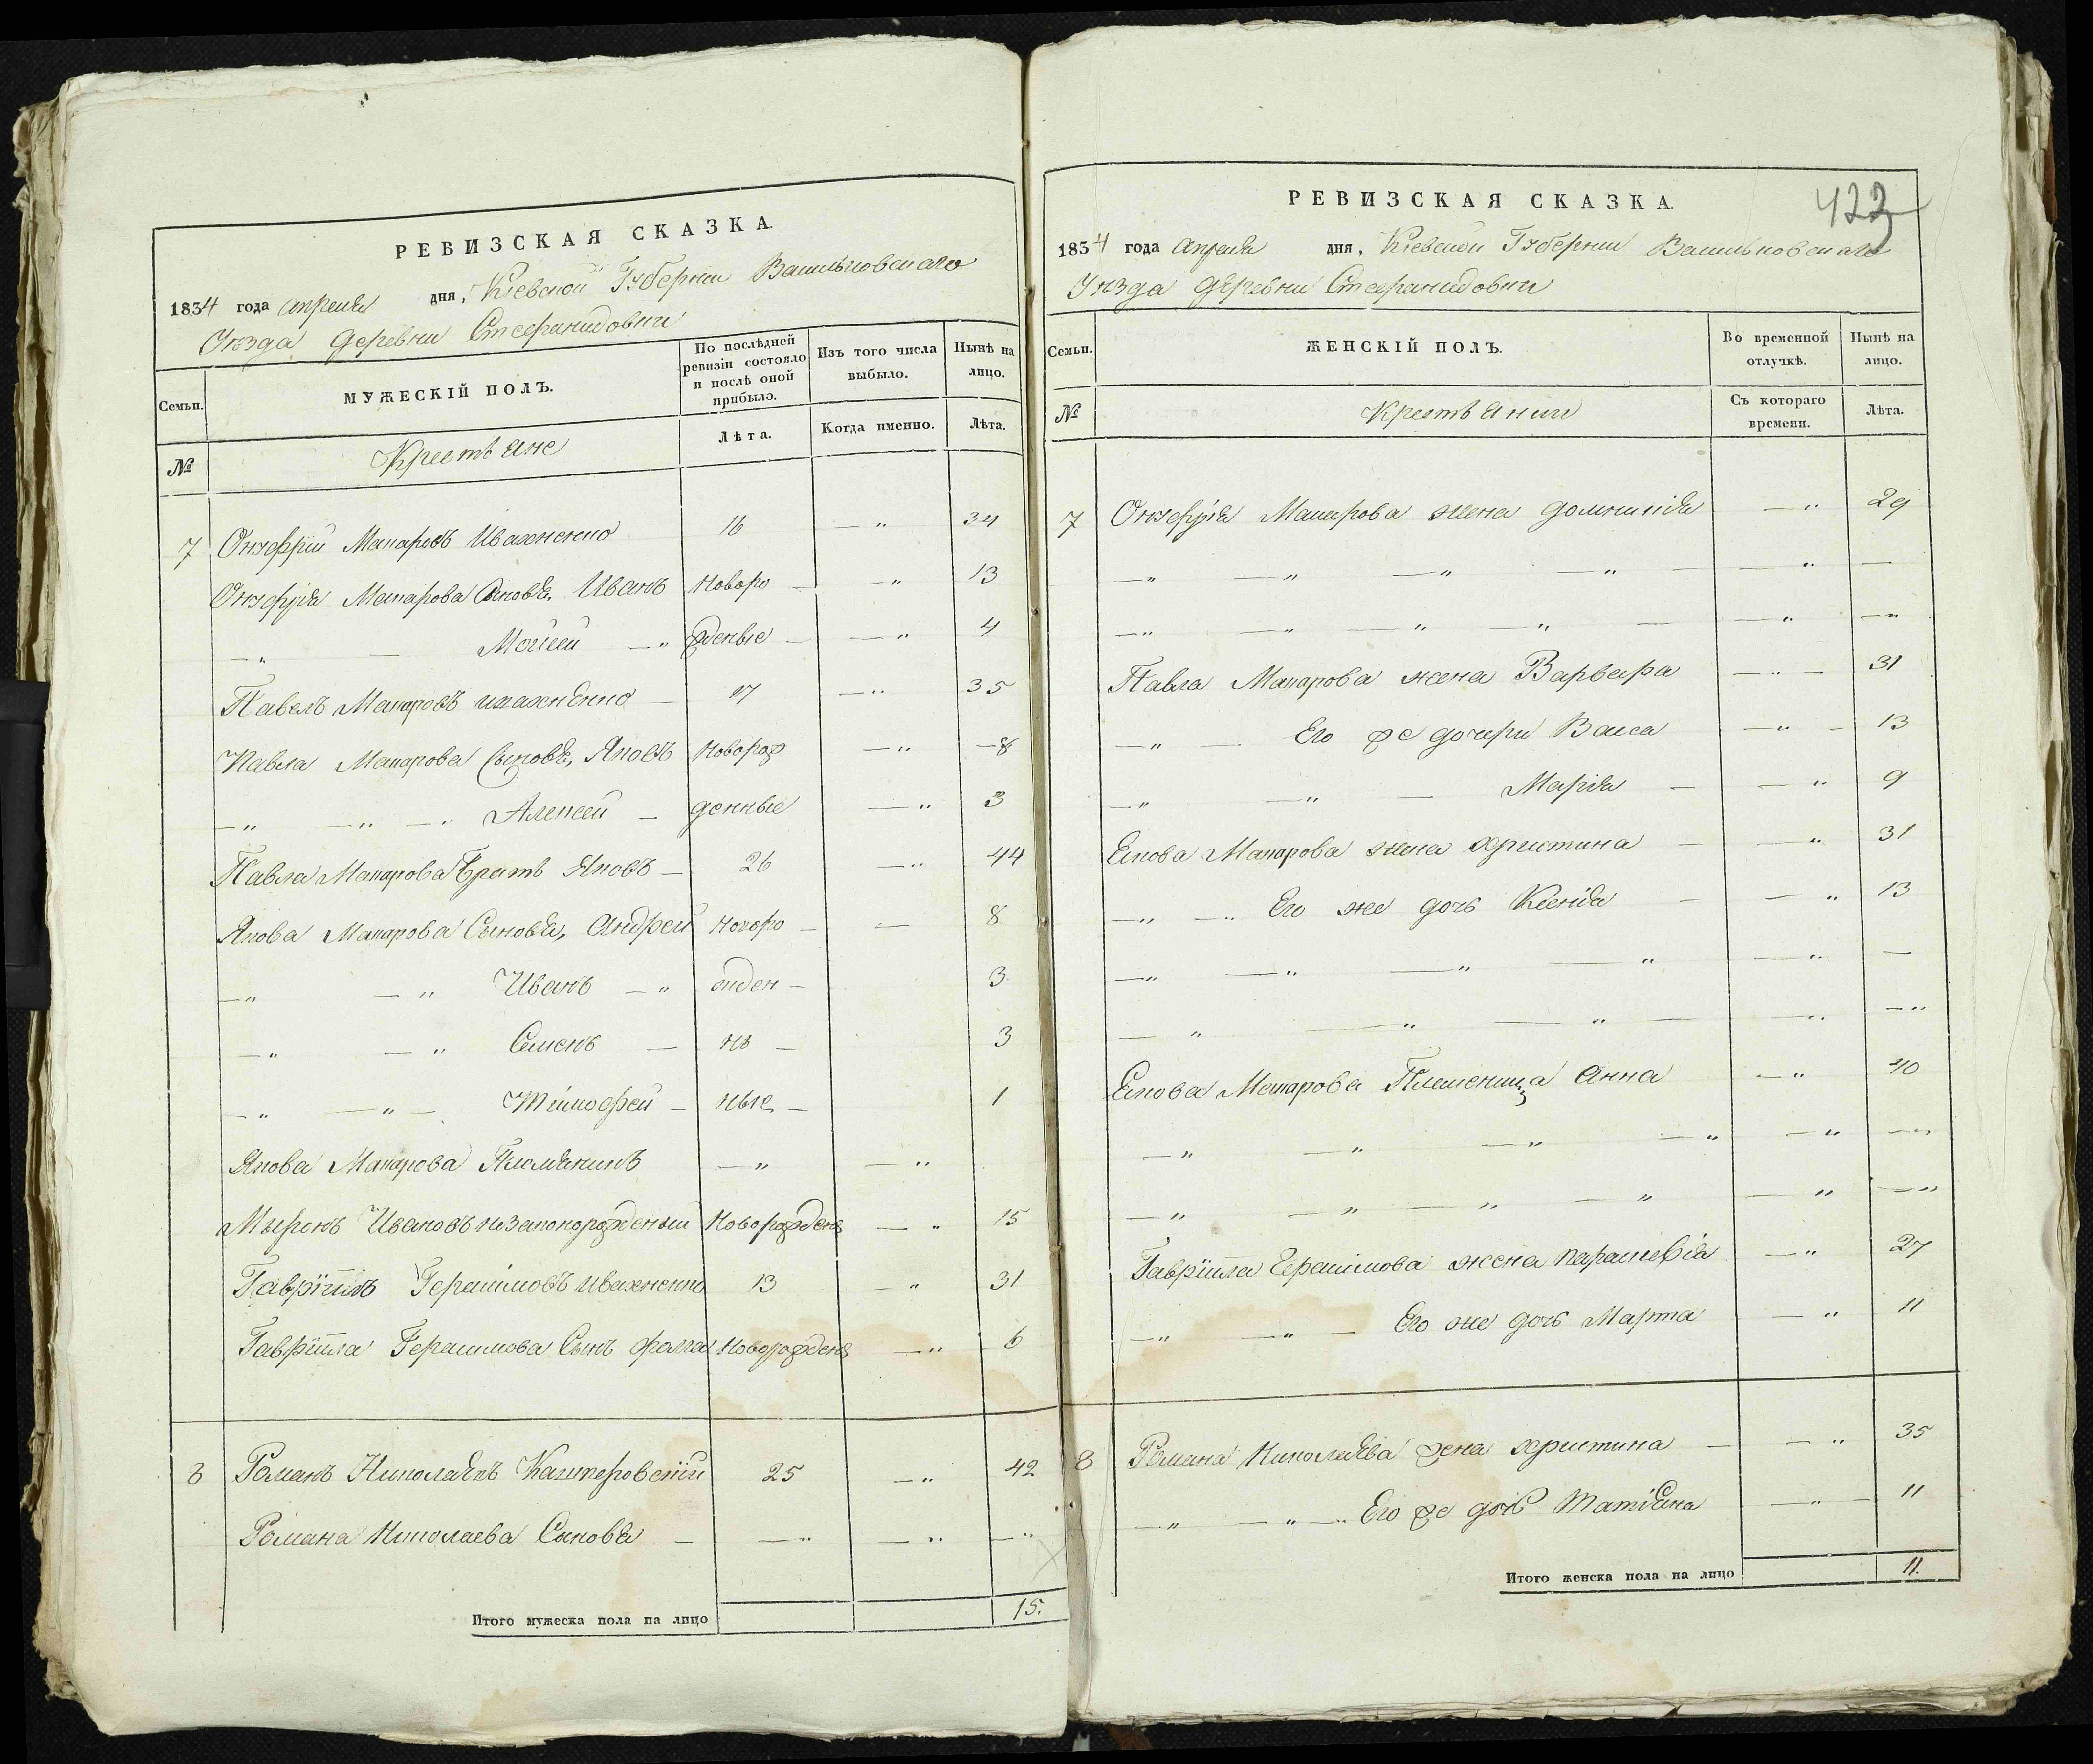 РЕВИЗСКАЯ СКАЗКА.
1834 года апреля дня, Кіевской Губернии Васильковскаго
Уезда деревни Стефанидовки
Семьи.
МУЖЕСКІЙ ПОЛЪ.
По послѣдней ревизіи состояло и послѣ оной прибыло.
Изъ того числа выбыло.
Нынѣ на лицо.
№
Крестьяне
Лѣта.
Когда именно.
Лѣта.
7 Онуфрій Макаровъ Ивахненко 16 — " 34
Онуфрія Макарова Сыновья, Иванъ Новоро — — " 13
— " — Мойсей — " жденые — — " 4
Павелъ Макаровъ ивахненко — 17 — " 35
Павла Макарова Сыновья, Яковъ Новорож — " — 8
— " — " — " Алексей — денные — " 3
Павла Макарова Братъ Яковъ — 26 — " 44
Якова Макарова Сыновья, Андрей Новоро — — 8
— " — " Иванъ — " жден — 3
— " — " Семенъ — 3
— " — " — Тимофей — ные — 1
Якова Макарова Племянникъ — " — "
Миронъ Ивановъ незаконорожденый Новорожденъ — " 15
Гаврiилъ Герасимовъ Ивахненко 13 — " 31
Гаврiила Герасимова Сынъ Новорожденъ — " 6
8 Романъ Николаевъ Кашперовскiй 25 — " 42
Романа Николаева Сыновья — — " — " — "
Итого мужеска пола на лицо 15.
423
РЕВИЗСКАЯ СКАЗКА.
1834 года апреля дня, Кіевской Губернии Васильковскаго
Уезда деревни Стефанидовки
Семьи.
ЖЕНСКІЙ ПОЛЪ.
Во временной отлучкѣ.
Нынѣ на лицо.
№
Крестьянки
Съ котораго времени.
Лѣта.
7 Онуфрія Макарова жена домникія — " 29
— " — " — " — " — — " —
— " — " — " — " — — " — "
Павла Макарова жена Варвара — " — 31
— " — Его же дочери Васса — " — 13
— " — " — Марія — — " 9
Якова Макарова жена христина — — " 31
— " — " Его же дочь Ксенія — — " 13
— " — " — " — " — " —
— " — " — " — — " — "
Якова Макарова Племенница Анна — " 40
— " — " — " — " — " — "
— " — " — " — " — " — "
Гаврiила Герасимова жена параскевія — " 27
— " — " — Его же дочь Марта — " 11
8 Романа Николаева жена христина — — " 35
— " — " — " Его же дочь Татіяна — " — 11
Итого женска пола на лицо 11.